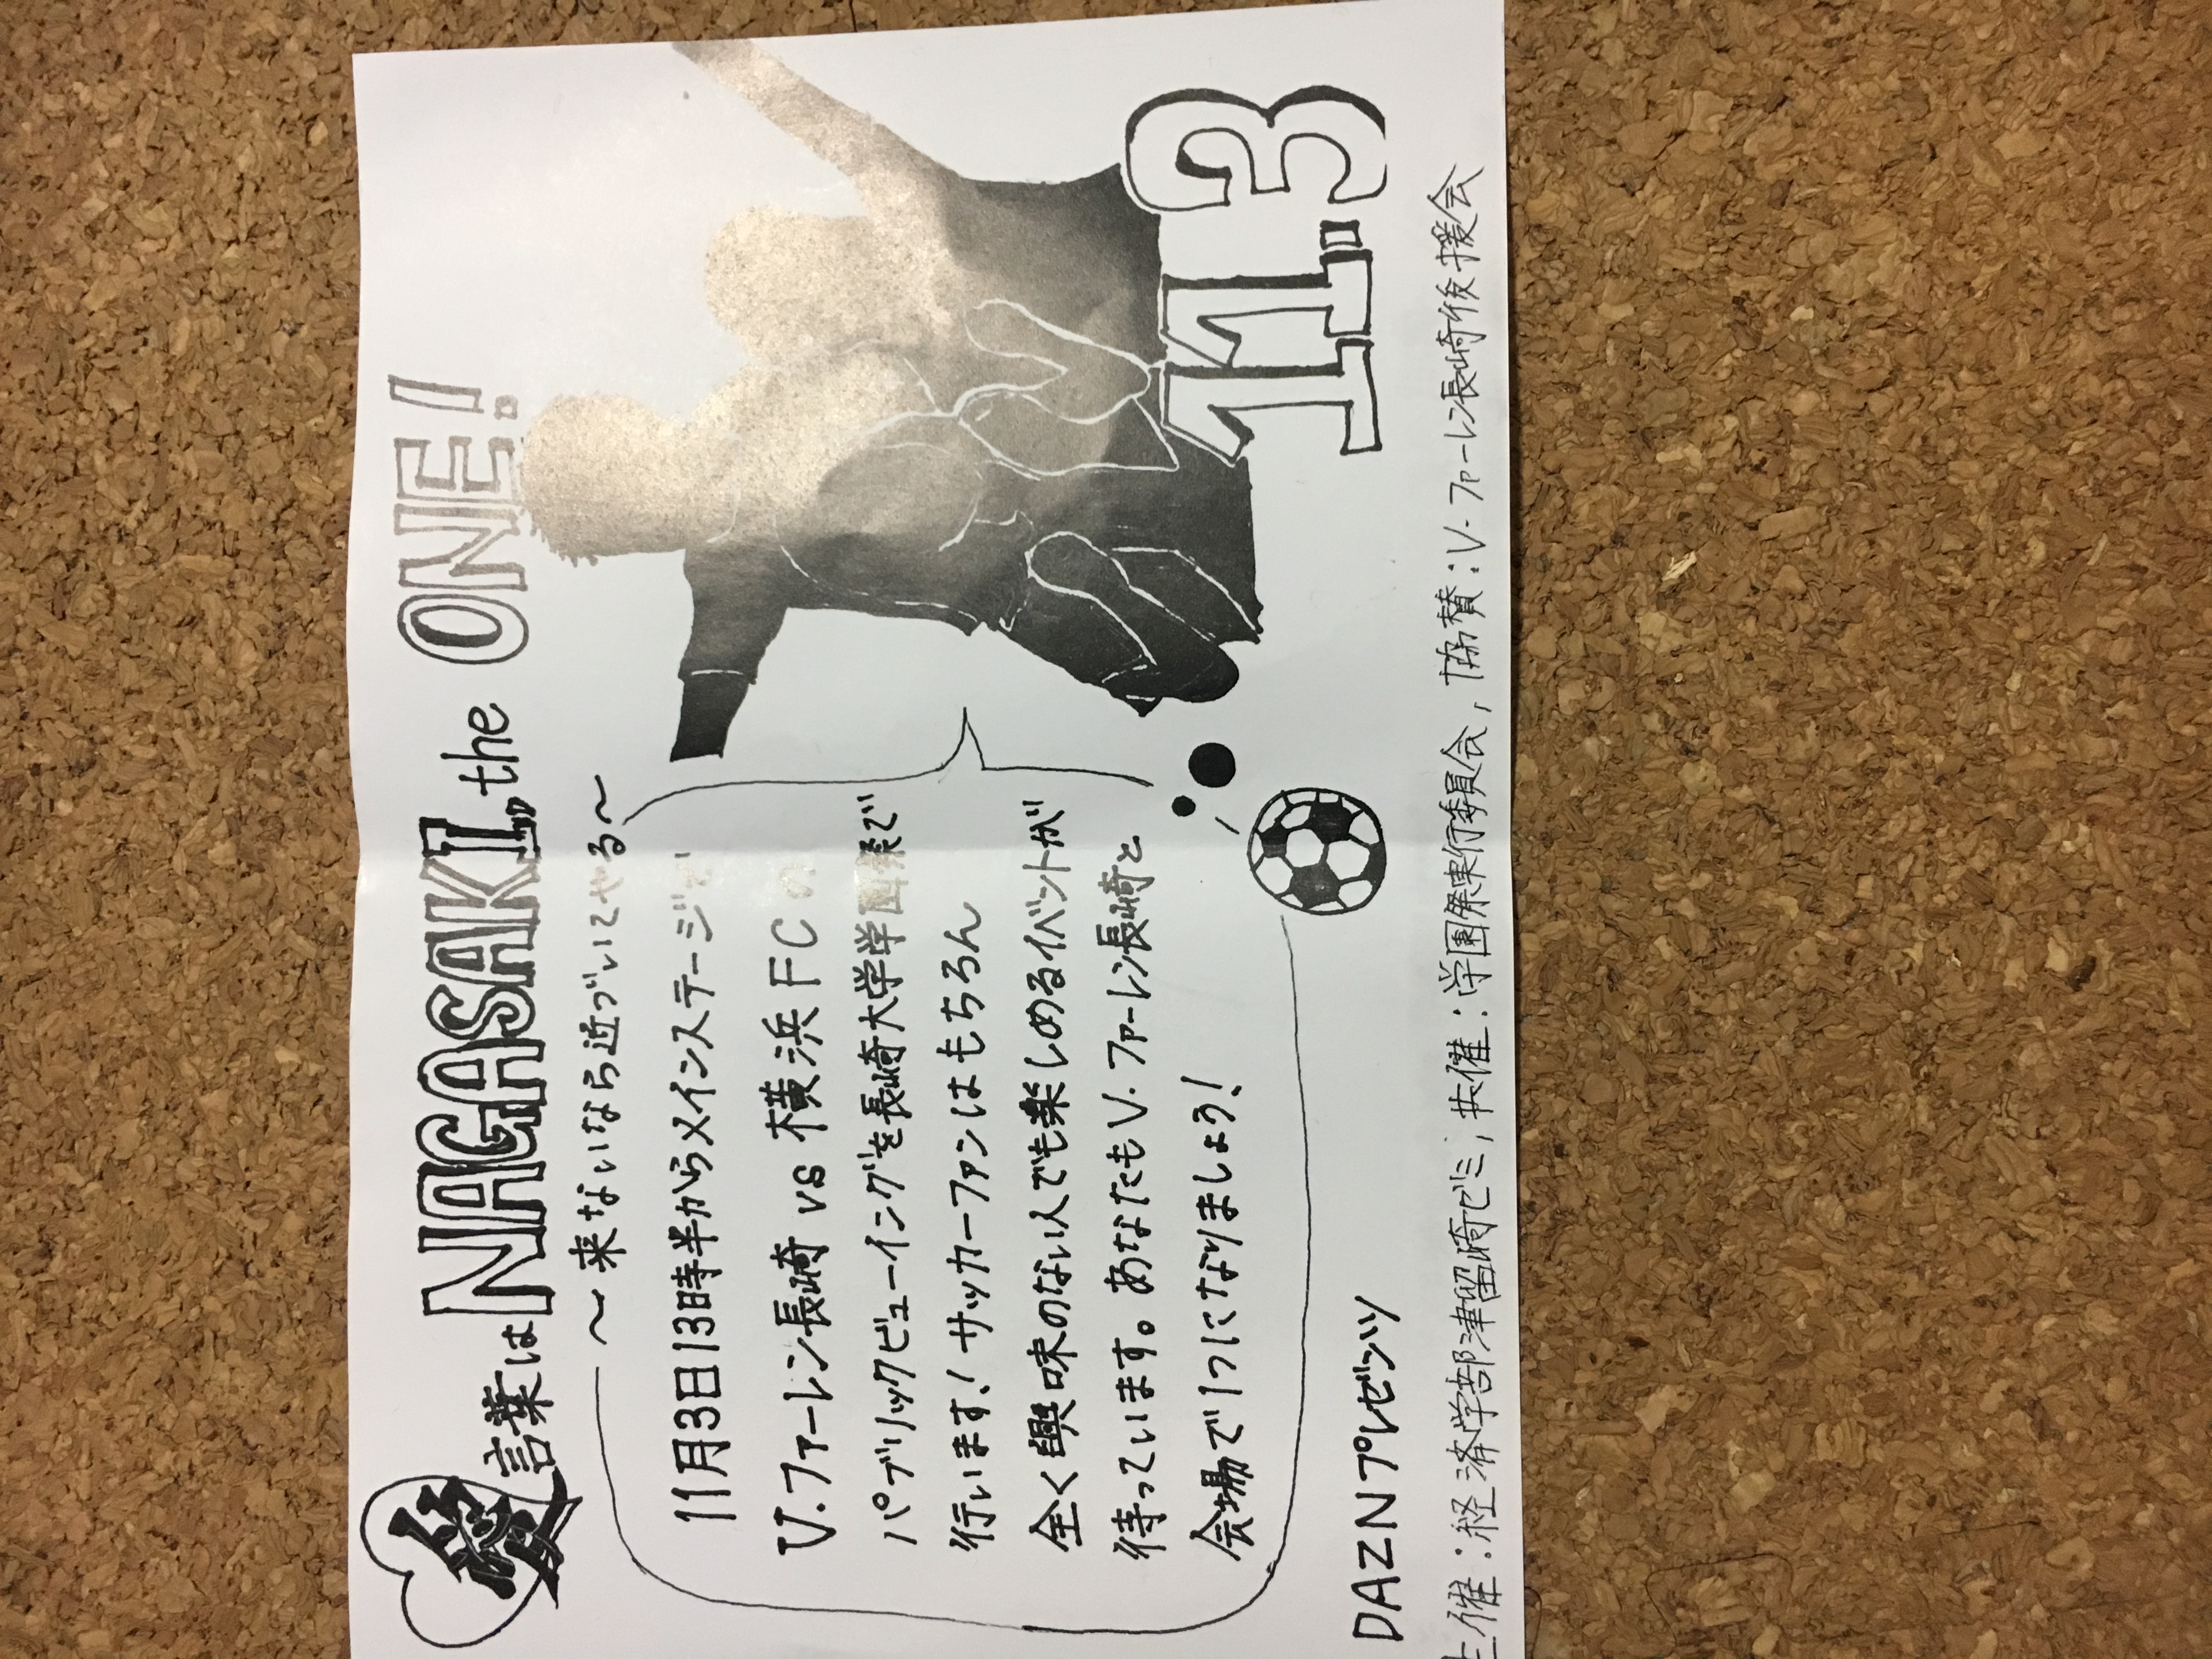 愛言葉はNAGASAKI, the ONE!
〜来ないなら近づいてやる〜
11月3日13時半からメインステージで
V.ファーレン長崎 vs 横浜FCの
パブリックビューイングを長崎大学学園祭で
行います!サッカーファンはもちろん
全く興味のない人でも楽しめるイベントが
待っています。あなたもV.ファーレン長崎と
会場で1つになりましょう!
11.3
DAZNプレゼンツ
主催:経済学部津留崎ゼミ,共催:学園祭実行委員会,協賛:V.ファーレン長崎後援会